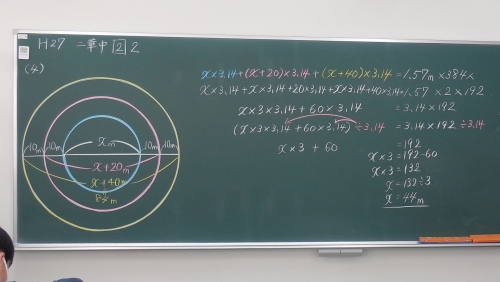 H27 二華中 2 2
(4)
xm
10m 10m 10m 10m
x+20m
x+40m
84m
x×3.14+(x+20)×3.14+(x+40)×3.14=1.57m×384x
x×3.14+x×3.14+20×3.14+x×3.14+40×3.14=1.57×2×192
x×3×3.14+60×3.14=3.14×192
(x×3×3.14+60×3.14)÷3.14=3.14×192÷3.14
x×3+60=192
x×3=192-60
x×3=132
x=132÷3
x=44m